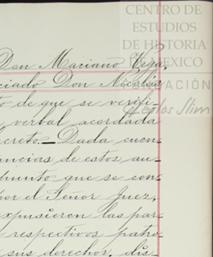 CENTRO DE
ESTUDIOS
DE HISTORIA
DE MÉXICO
FUNDACIÓN
Carlos Slim
Don Mariano Vega,
ciado Don Nicolás
to de que se verifi-
verbal acordada
creto. Dada cuen-
ancias de estos au-
punto que se con-
por el Señor Juez,
expusieron las par-
respectivos patro
sus derechos, dis-